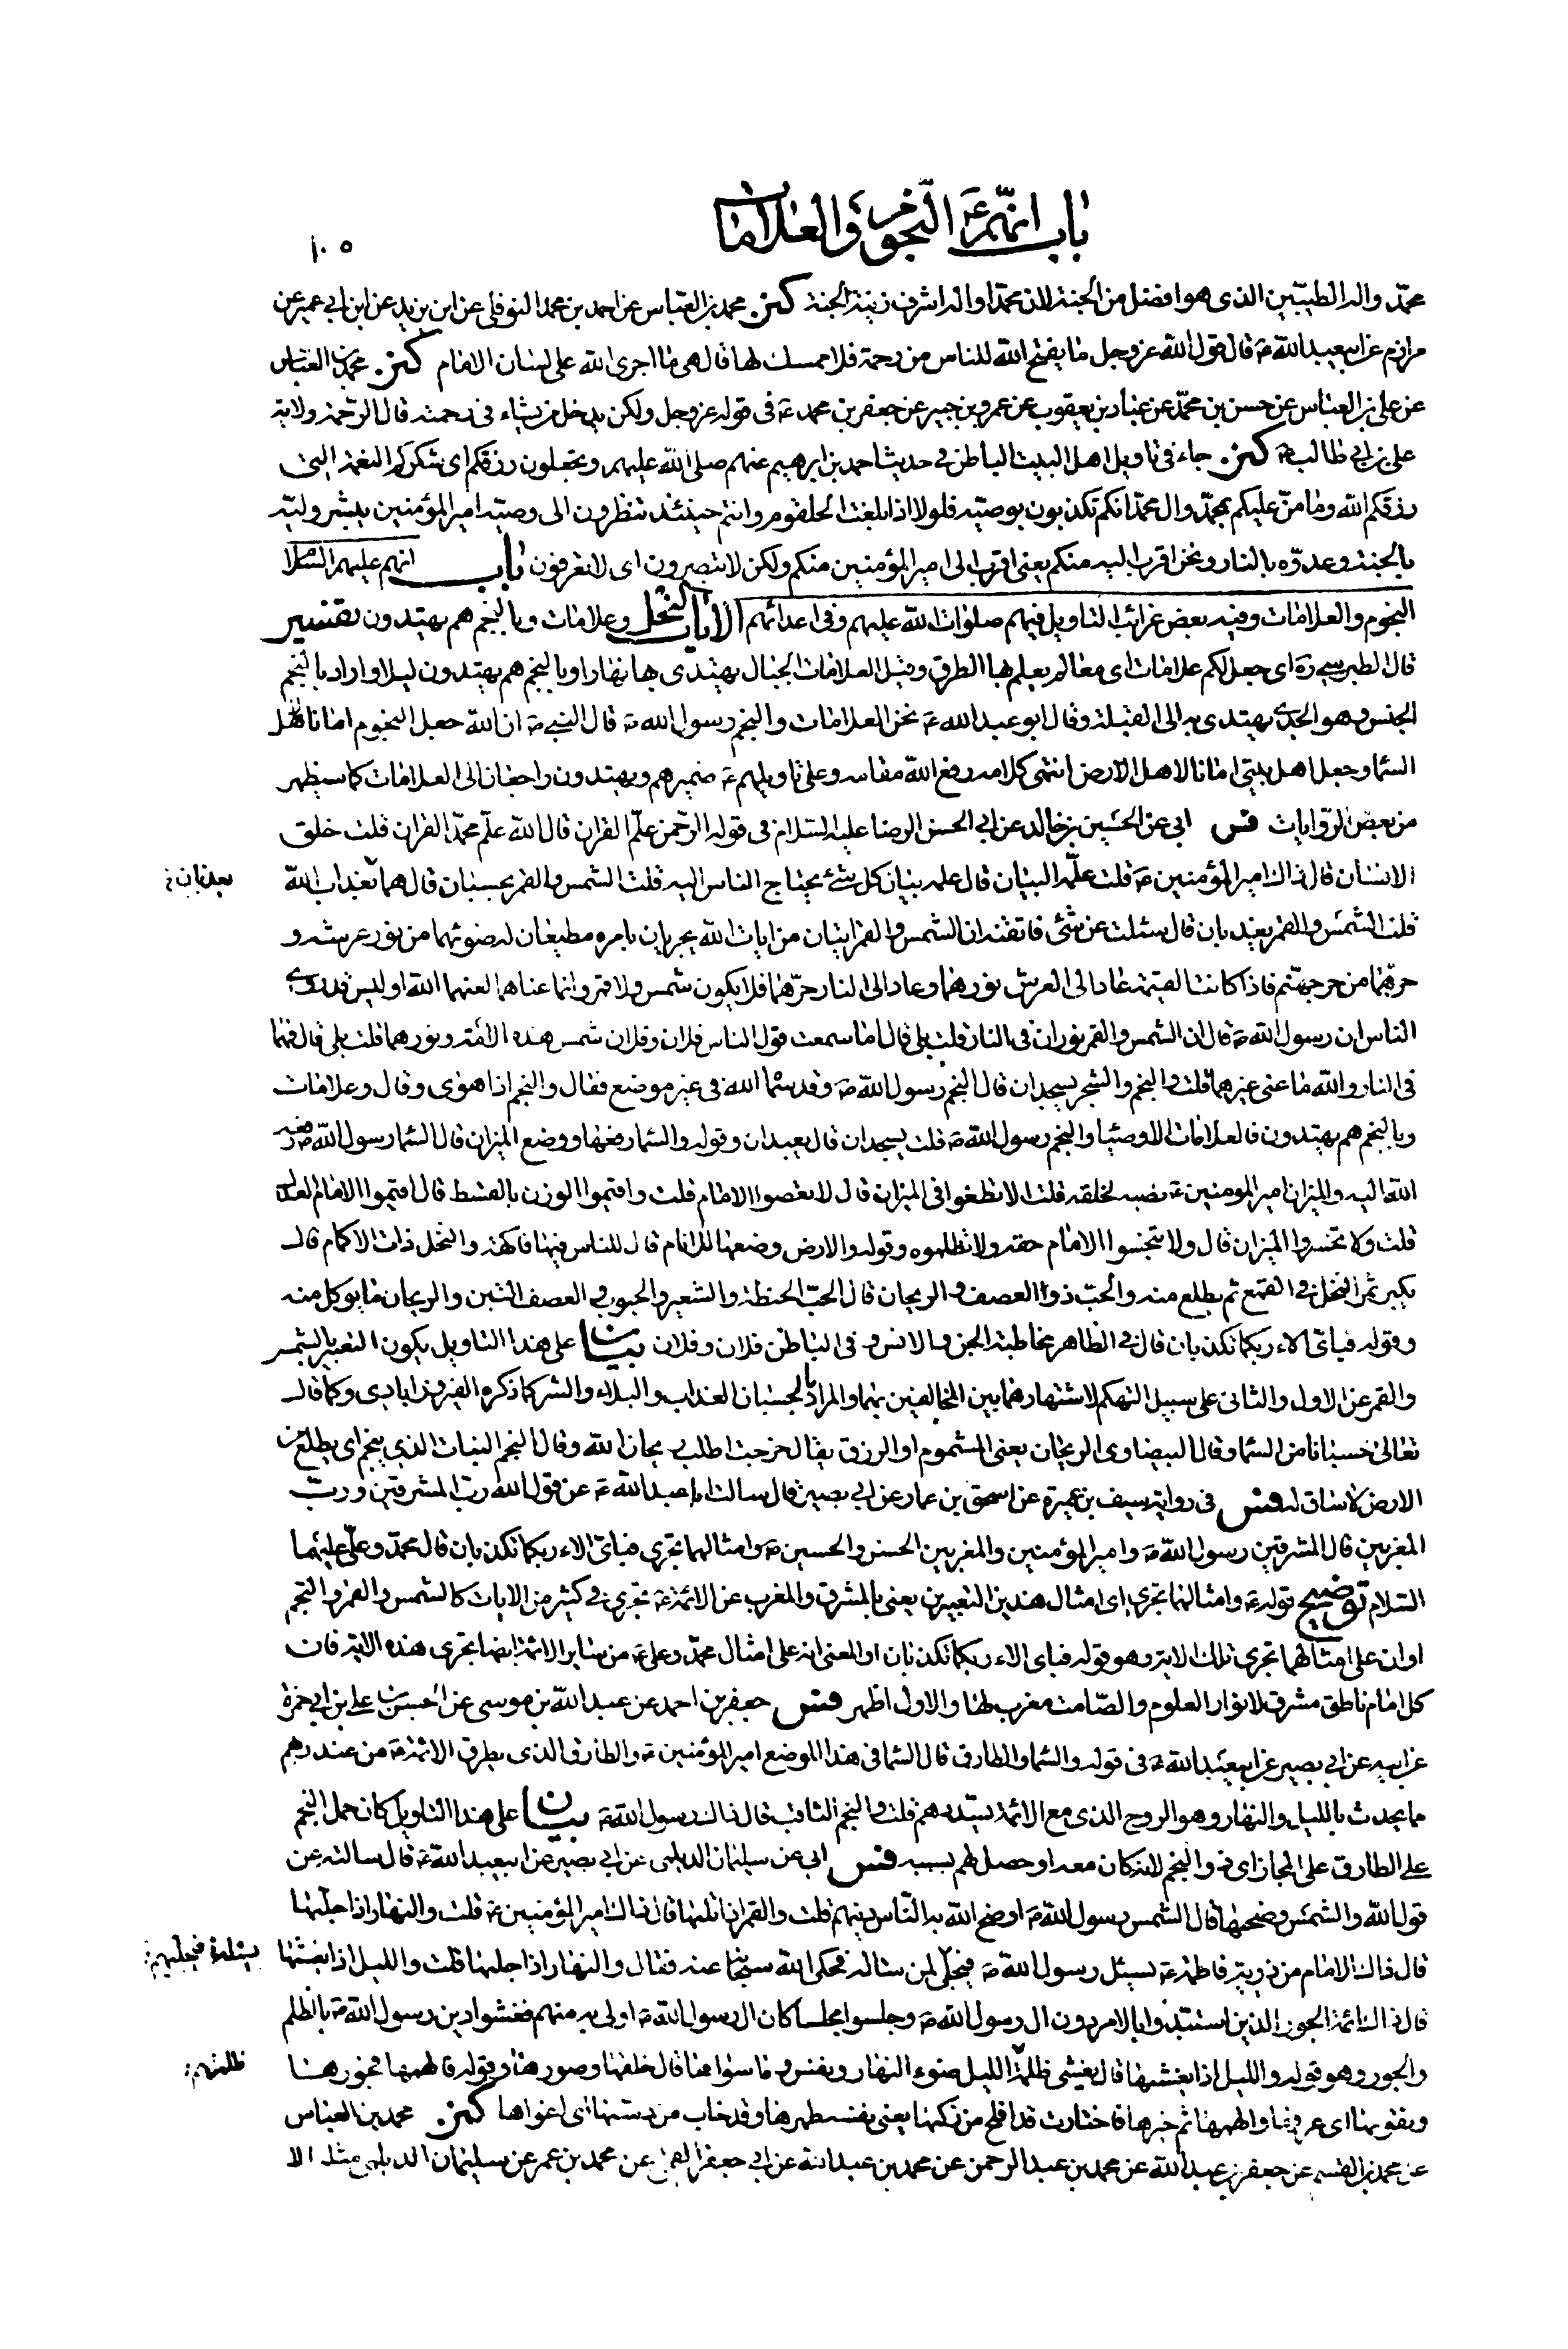 باب انهم ع النجوم والعلامات
١٠٥
محمد واله الطيبين الذى هو افضل من الجنة لان محمدا واله اشرف زينة الجنة كنز محمد بن العباس عن احمد بن محمد النوفلى عن ابن يزيد عن ابن ابى عمير عن
مرازم عن ابيعبد الله ع قال قول الله عز وجل ما يفتح الله للناس من رحمة فلا ممسك لها قال هى ما اجرى الله على لسان الامام كنز محمد بن العباس
عن على بن العباس عن حسن بن محمد عن عباد بن يعقوب عن عمرو بن جبير عن جعفر بن محمد ع فى قوله عز وجل ولكن يدخل من يشاء فى رحمته قال الرحمة ولاية
على بن ابى طالب ع كنز جاء فى تاويل اهل البيت الباطن فى حديث احمد بن ابرهيم عنهم صلى الله عليهم وتجعلون رزقكم اى شكركم النعمة التى
رزقكم الله وما من عليكم بمحمد وال محمد انكم تكذبون بوصيه فلولا اذا بلغت الحلقوم وانتم حينئذ تنظرون الى وصيه امير المؤمنين يبشر وليه
بالجنة وعدوه بالنار ونحن اقرب اليه منكم يعنى اقرب الى امير المؤمنين منكم ولكن لا تبصرون اى لا تعرفون باب انهم عليهم السلام
النجوم والعلامات وفيه بعض غرائب التاويل فيهم صلوات الله عليهم وفى اعدائهم الايات النحل وعلامات وبالنجم هم يهتدون تفسير
قال الطبرسى ره اى جعل لكم علامات اى معالم يعلم بها الطرق وقيل العلامات الجبال يهتدى بها نهارا وبالنجم هم يهتدون ليلا واراد بالنجم
الجنس وهو الجدى يهتدى به الى القبلة وقال ابو عبد الله ع نحن العلامات والنجم رسول الله ص قال النبى ص ان الله جعل النجوم امانا لاهل
السماء وجعل اهل بيتى امانا لاهل الارض انتهى كلامه رفع الله مقامه وعلى تاويلهم ع ضمير هم ويهتدون راجعان الى العلامات كما سيظهر
من بعض الروايات فس ابى عن الحسين بن خالد عن ابى الحسن الرضا عليه السلام فى قوله الرحمن علم القران قال الله علم محمدا القران قلت خلق
الانسان قال ذاك امير المؤمنين ع قلت علمه البيان قال علمه بيان كل شئ يحتاج الناس اليه قلت الشمس والقمر بحسبان قال هما بعذاب الله
يعذبان خ
قلت الشمس والقمر يعذبان قال سئلت عن شئ فاتقنه ان الشمس والقمر ايتان من ايات الله يجريان بامره مطيعان له ضوئهما من نور عرشه و
حرهما من حر جهنم فاذا كانت القيمة عاد الى العرش نورهما وعاد الى النار حرهما فلا يكون شمس ولا قمر وانما عناهما لعنهما الله اوليس قد روى
الناس ان رسول الله ص قال ان الشمس والقمر نوران فى النار قلت بلى قال اما سمعت قول الناس فلان وفلان شمس هذه الامة ونورهما قلت بلى قال فهما
فى النار والله ما عنى غيرهما قلت والنجم والشجر يسجدان قال النجم رسول الله ص وقد سماه الله فى غير موضع فقال والنجم اذا هوى وقال وعلامات
وبالنجم هم يهتدون فالعلامات الاوصياء والنجم رسول الله ص قلت يسجدان قال يعبدان وقوله والسماء رفعها ووضع الميزان قال السماء رسول الله ص رفعه
الله اليه والميزان امير المومنين ع نصبه لخلقه قلت الا تطغوا فى الميزان قال لا تعصوا الامام قلت واقيموا الوزن بالقسط قال اقيموا الامام العدل
قلت ولا تخسروا الميزان قال ولا تبخسوا الامام حقه ولا تظلموه وقوله والارض وضعها للانام قال للناس فيها فاكهة والنخل ذات الاكمام قال
يكبر ثمر النخل فى القمع ثم يطلع منه والحب ذو العصف والريحان قال الحب الحنطة والشعير والحبوب والعصف التبن والريحان ما يوكل منه
وقوله فباى الاء ربكما تكذبان قال فى الظاهر مخاطبة الجن والانس و فى الباطن فلان وفلان بيان على هذا التاويل يكون التعبير بالشمس
والقمر عن الاول والثانى على سبيل التهكم لاشتهارهما بين المخالفين بهما والمراد بالحسبان العذاب والبلاء والشر كما ذكره الفيروزابادى وكما قال
تعالى حسبانا من السماء وقال البيضاوى الريحان يعنى المشموم او الرزق يقال خرجت اطلب ريحان الله وقال النجم النبات الذى ينجم اى يطلع من
الارض لا ساق له فس فى رواية سيف بن عميرة عن اسحق بن عمار عن ابى بصير قال سالت ابا عبد الله ع عن قول الله رب المشرقين ورب
المغربين قال المشرقين رسول الله ص وامير المؤمنين والمغربين الحسن والحسين ع وامثالهما تجرى فباى الاء ربكما تكذبان قال محمد وعلى عليهما
السلام توضيح قوله ع وامثالهما تجرى اى امثال هذين التعبيرين يعنى بالمشرق والمغرب عن الائمة ع تجرى فى كثير من الايات كالشمس والقمر والنجم
او ان على امثالهما تجرى تلك الاية وهو قوله فباى الاء ربكما تكذبان او المعنى انه على امثال محمد وعلى ع من ساير الائمة ايضا تجرى هذه الاية فان
كل امام ناطق مشرق لانوار العلوم والصامت مغرب لها والاول اظهر فس جعفر بن احمد عن عبد الله بن موسى عن الحسن بن على بن ابى حمزة
عن ابيه عن ابى بصير عن ابيعبد الله ع فى قوله والسماء والطارق قال السماء فى هذا الموضع امير المؤمنين ع والطارق الذى يطرق الائمة ع من عند ربهم
مما يحدث بالليل والنهار وهو الروح الذى مع الائمة يسددهم قلت والنجم الثاقب قال ذاك رسول الله ص بيان على هذا التاويل كان حمل النجم
على الطارق على المجاز اى ذو النجم لانه كان معه او حصل لهم بسببه فس ابى عن سليمان الديلمى عن ابى بصير عن ابيعبد الله ع قال سالته عن
قول الله والشمس وضحيها قال الشمس رسول الله ص اوضح الله به الناس دينهم قلت والقمر اذا تليها قال ذاك امير المؤمنين ع قلت والنهار اذا جليها
قال ذاك الامام من ذرية فاطمة ع يسئل رسول الله ص فيجلى لمن ساله فحكى الله سبحانه عنه فقال والنهار اذا جليها قلت والليل اذا يغشيها
قال ذاك ائمة الجور الذين استبدوا بالامر دون ال رسول الله ص وجلسوا مجلسا كان ال رسول الله ص اولى به منهم فغشوا دين رسول الله ص بالظلم
والجور وهو قوله والليل اذا يغشيها قال يغشى ظلمة الليل ضوء النهار ونفس وما سواها قال خلقها وصورها وقوله فالهمها فجورها
ظلمهم خ
وتقويها اى عرفها والهمها ثم خيرها فاختارت قد افلح من زكيها يعنى نفسه طهرها وقد خاب من دسيها اى اغواها كنز محمد بن العباس
عن محمد بن القسم عن جعفر بن عبد الله عن محمد بن عبد الرحمن عن محمد بن عبد الله عن ابى جعفر القمى عن محمد بن عمر عن سليمان الديلمى مثله الا